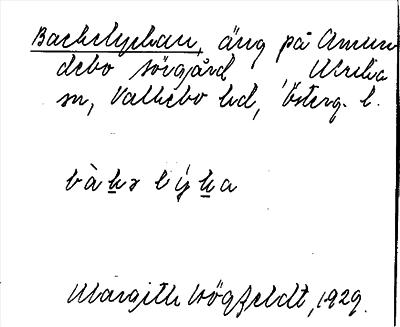 Backelyckan, äng på Amun
debo sörgård, Ulrika
sn, Valkebo hd, Österg. l.
bàks lyka
Margith Högfeldt, 1929.